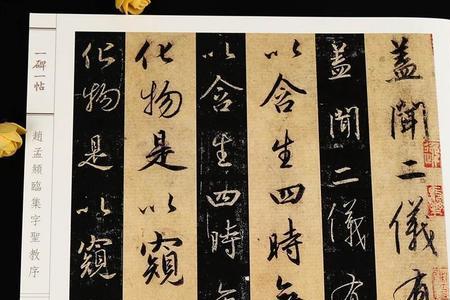 盖聞二儀有
盖聞二儀有
以含生四時無
以含生四時無
化物是以窺
化物是以窺
一碑一帖
趙孟頫臨集字聖教序